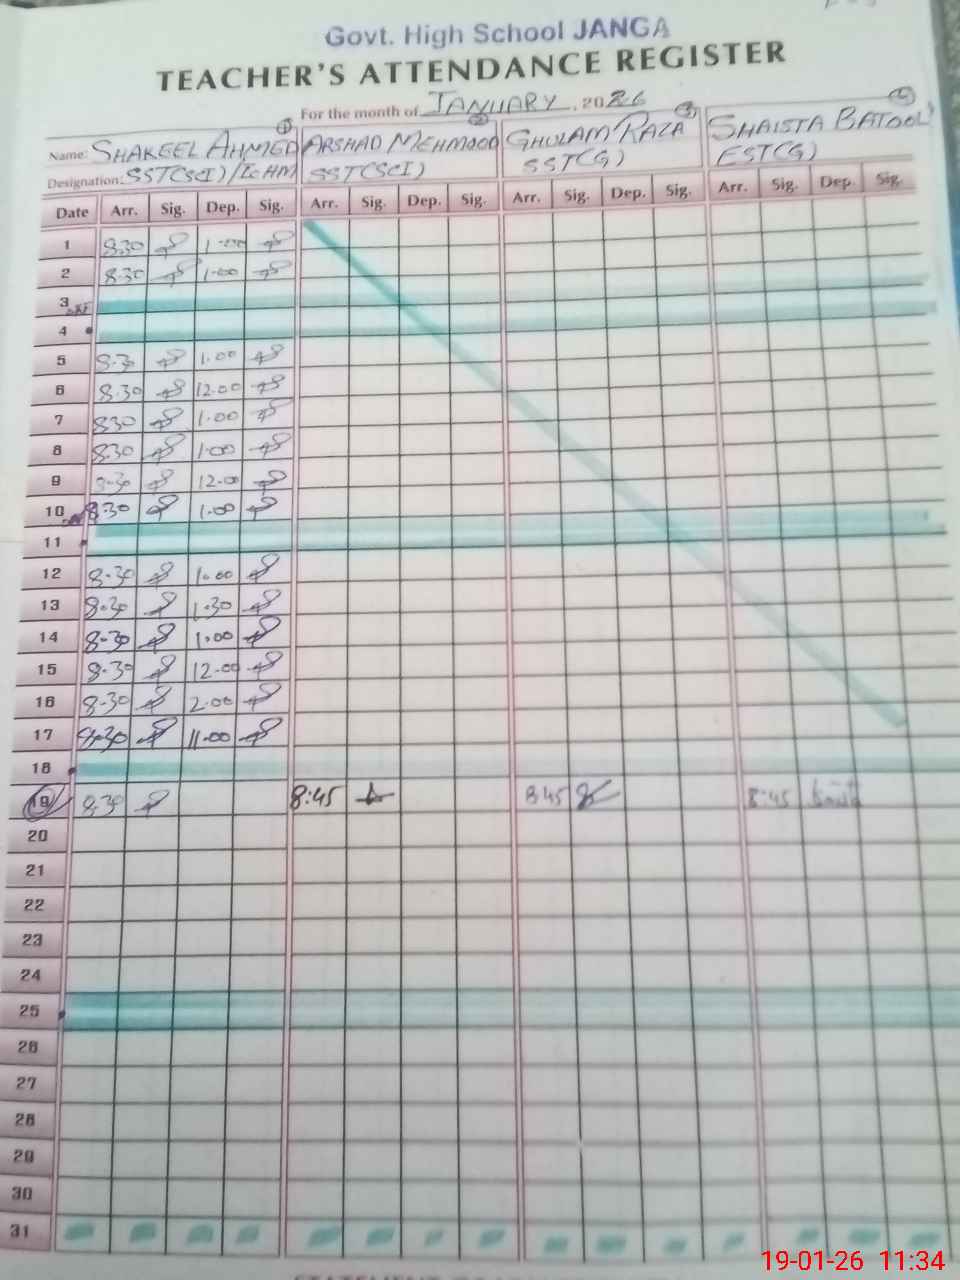 Govt. High School JANGA
TEACHER'S ATTENDANCE REGISTER
For the month of JANUARY, 2026
Name: SHAKEEL AHMED ① ARSHAD MEHMOOD ② GHULAM RAZA ③ SHAISTA BATOOL ④
Designation: SST(SCI)/IcHM SST(SCI) SST(G) EST(G)
Date Arr. Sig. Dep. Sig. Arr. Sig. Dep. Sig. Arr. Sig. Dep. Sig. Arr. Sig. Dep. Sig.
1 8.30 1.00
2 8.30 1.00
3
4
5 8.30 1.00
6 8.30 12.00
7 830 1.00
8 8.30 1.00
9 8.30 12.00
10 8.30 1.00
11
12 8.30 1.00
13 8.30 1.30
14 8.30 1.00
15 8.30 12.00
16 8.30 2.00
17 8.30 11.00
18
19 8.30 8:45 8:45 8:45
20
21
22
23
24
25
26
27
28
29
30
31
19-01-26 11:34